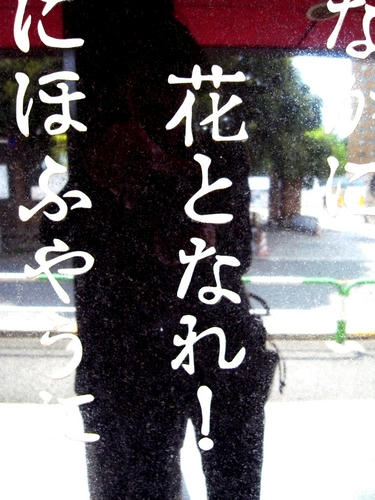 なかに
花となれ！
にほふやうに